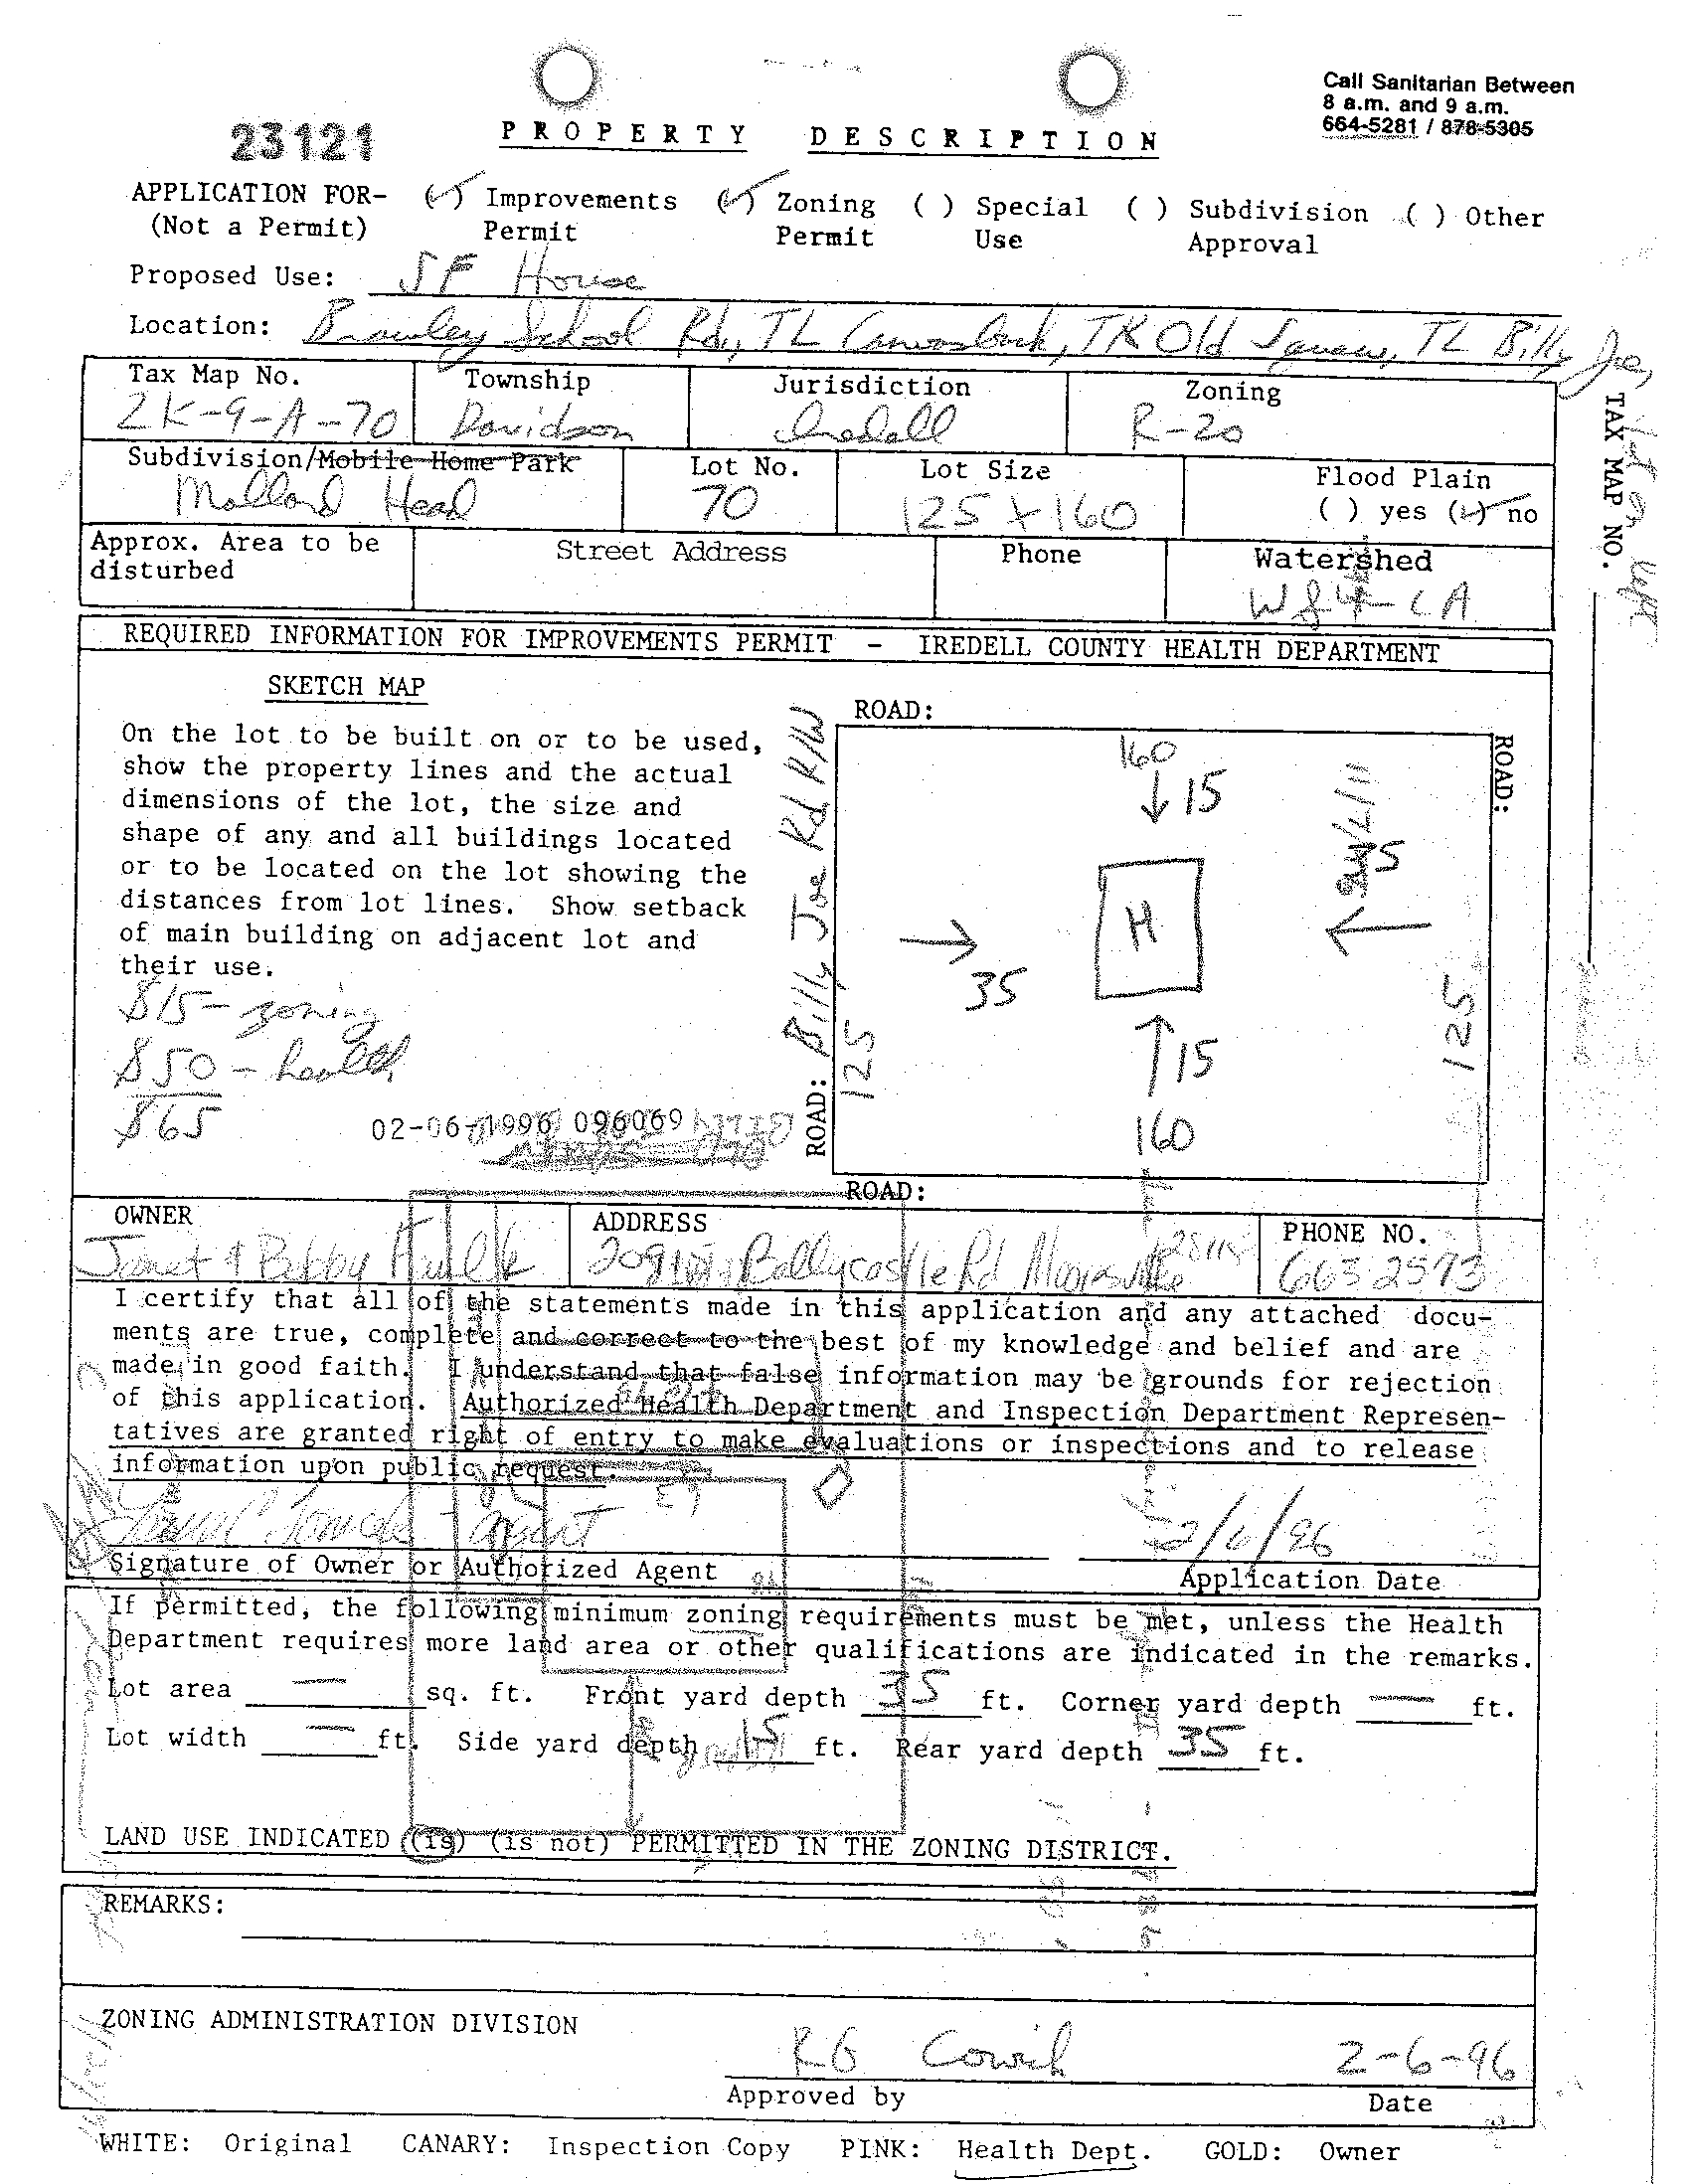 Call Sanitarian Between
8 a.m. and 9 a.m.
664-5281 / 878-5305
23121
PROPERTY DESCRIPTION
APPLICATION FOR- (✓) Improvements (✓) Zoning ( ) Special ( ) Subdivision ( ) Other
(Not a Permit) Permit Permit Use Approval
Proposed Use: SF House
Location: Brawley School Rd., TL Canvasback, TR Old Squaw, TL Billy Joe,
lot on left
TAX MAP NO.
Tax Map No. Township Jurisdiction Zoning
2K-9-A-70 Davidson Iredell R-20
Subdivision/Mobile Home Park Lot No. Lot Size Flood Plain
Mallard Head 70 125 x 160 ( ) yes (✓) no
Approx. Area to be Street Address Phone Watershed
disturbed
WS4-CA
REQUIRED INFORMATION FOR IMPROVEMENTS PERMIT - IREDELL COUNTY HEALTH DEPARTMENT
SKETCH MAP
On the lot to be built on or to be used,
show the property lines and the actual
dimensions of the lot, the size and
shape of any and all buildings located
or to be located on the lot showing the
distances from lot lines. Show setback
of main building on adjacent lot and
their use.
$15- zoning
$50 - health
$65
02-06-1996 096069
ROAD:
ROAD: Billy Joe Rd R/W
160
15
H
35
35
125
125
15
160
ROAD:
ROAD:
OWNER ADDRESS PHONE NO.
Janet & Bobby 209 Ballycastle Rd Mooresville 28115 663 2573
I certify that all of the statements made in this application and any attached docu-
ments are true, complete and correct to the best of my knowledge and belief and are
made in good faith. I understand that false information may be grounds for rejection
of this application. Authorized Health Department and Inspection Department Represen-
tatives are granted right of entry to make evaluations or inspections and to release
information upon public request.
agent 2/6/96
Signature of Owner or Authorized Agent Application Date
If permitted, the following minimum zoning requirements must be met, unless the Health
Department requires more land area or other qualifications are indicated in the remarks.
Lot area — sq. ft. Front yard depth 35 ft. Corner yard depth — ft.
Lot width — ft. Side yard depth 15 ft. Rear yard depth 35 ft.
LAND USE INDICATED (is) (is not) PERMITTED IN THE ZONING DISTRICT.
REMARKS:
ZONING ADMINISTRATION DIVISION
RG 2-6-96
Approved by Date
WHITE: Original CANARY: Inspection Copy PINK: Health Dept. GOLD: Owner